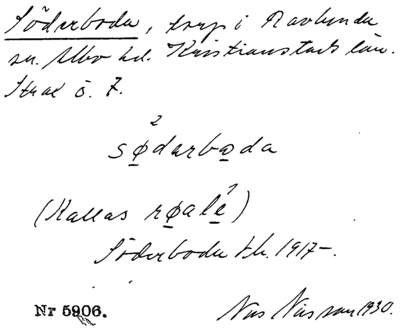 Söderboda, torp i Ravlunda
sn. Albo hd. Kristianstads län.
Strax ö. 7.
sø²darbo̲da
(Kallas rø̲ale̲´)
Söderboda t.h. 1917-.
Nr 5906.
Nils Nilsson 1930.